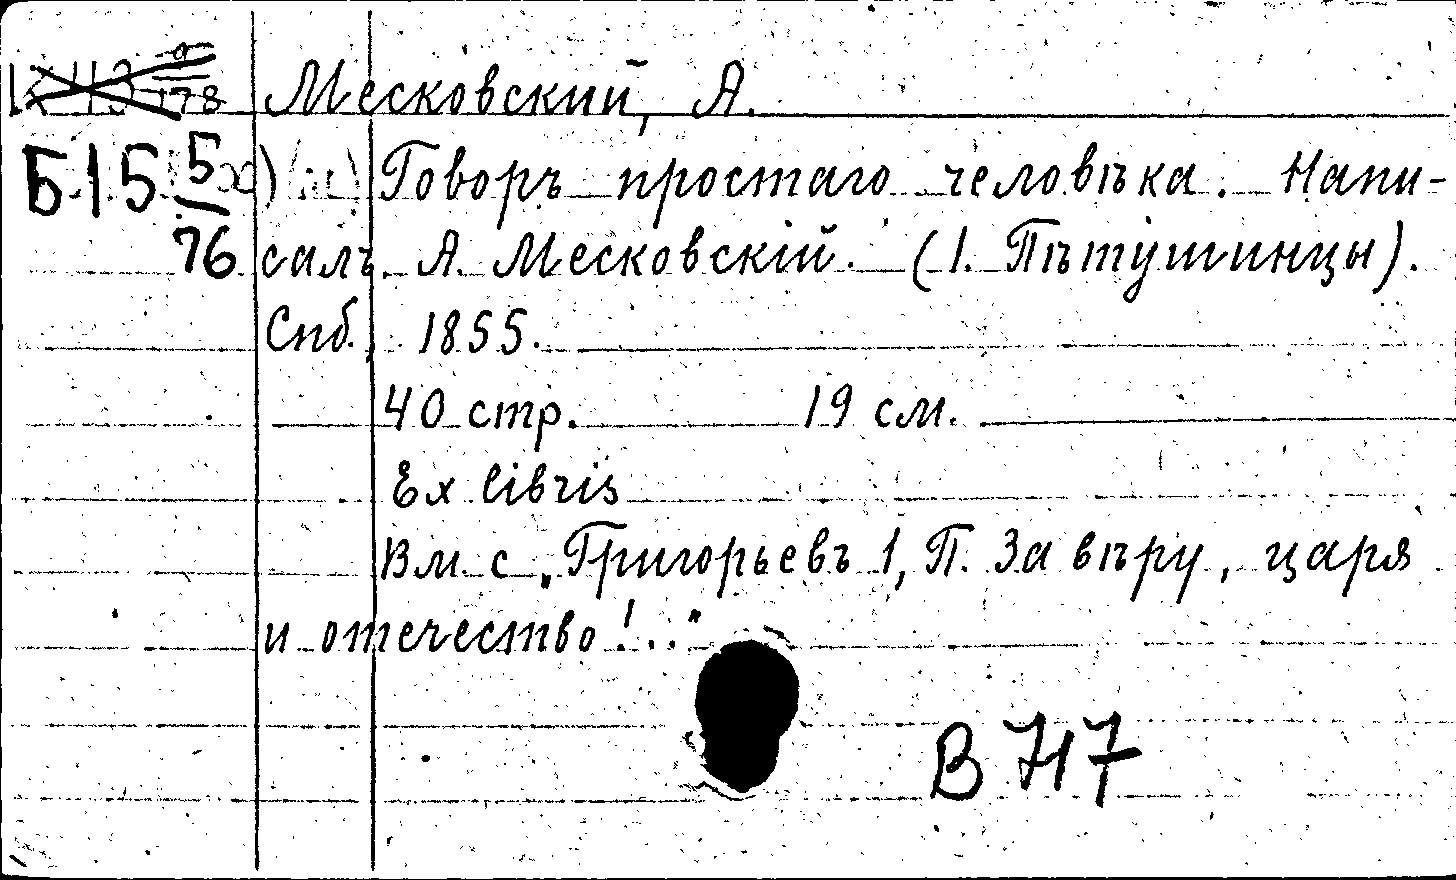 Месковский, А.
Б15 5/76
Говоръ простаго человѣка. Напи-
салъ А. Месковскій. (1. Пѣтушинцы).
Спб., 1855.
40 стр. 19 см.
Ex libris
Вм. с „Григорьевъ 1, П. За вѣру, царя
и отечество!.."
В 717